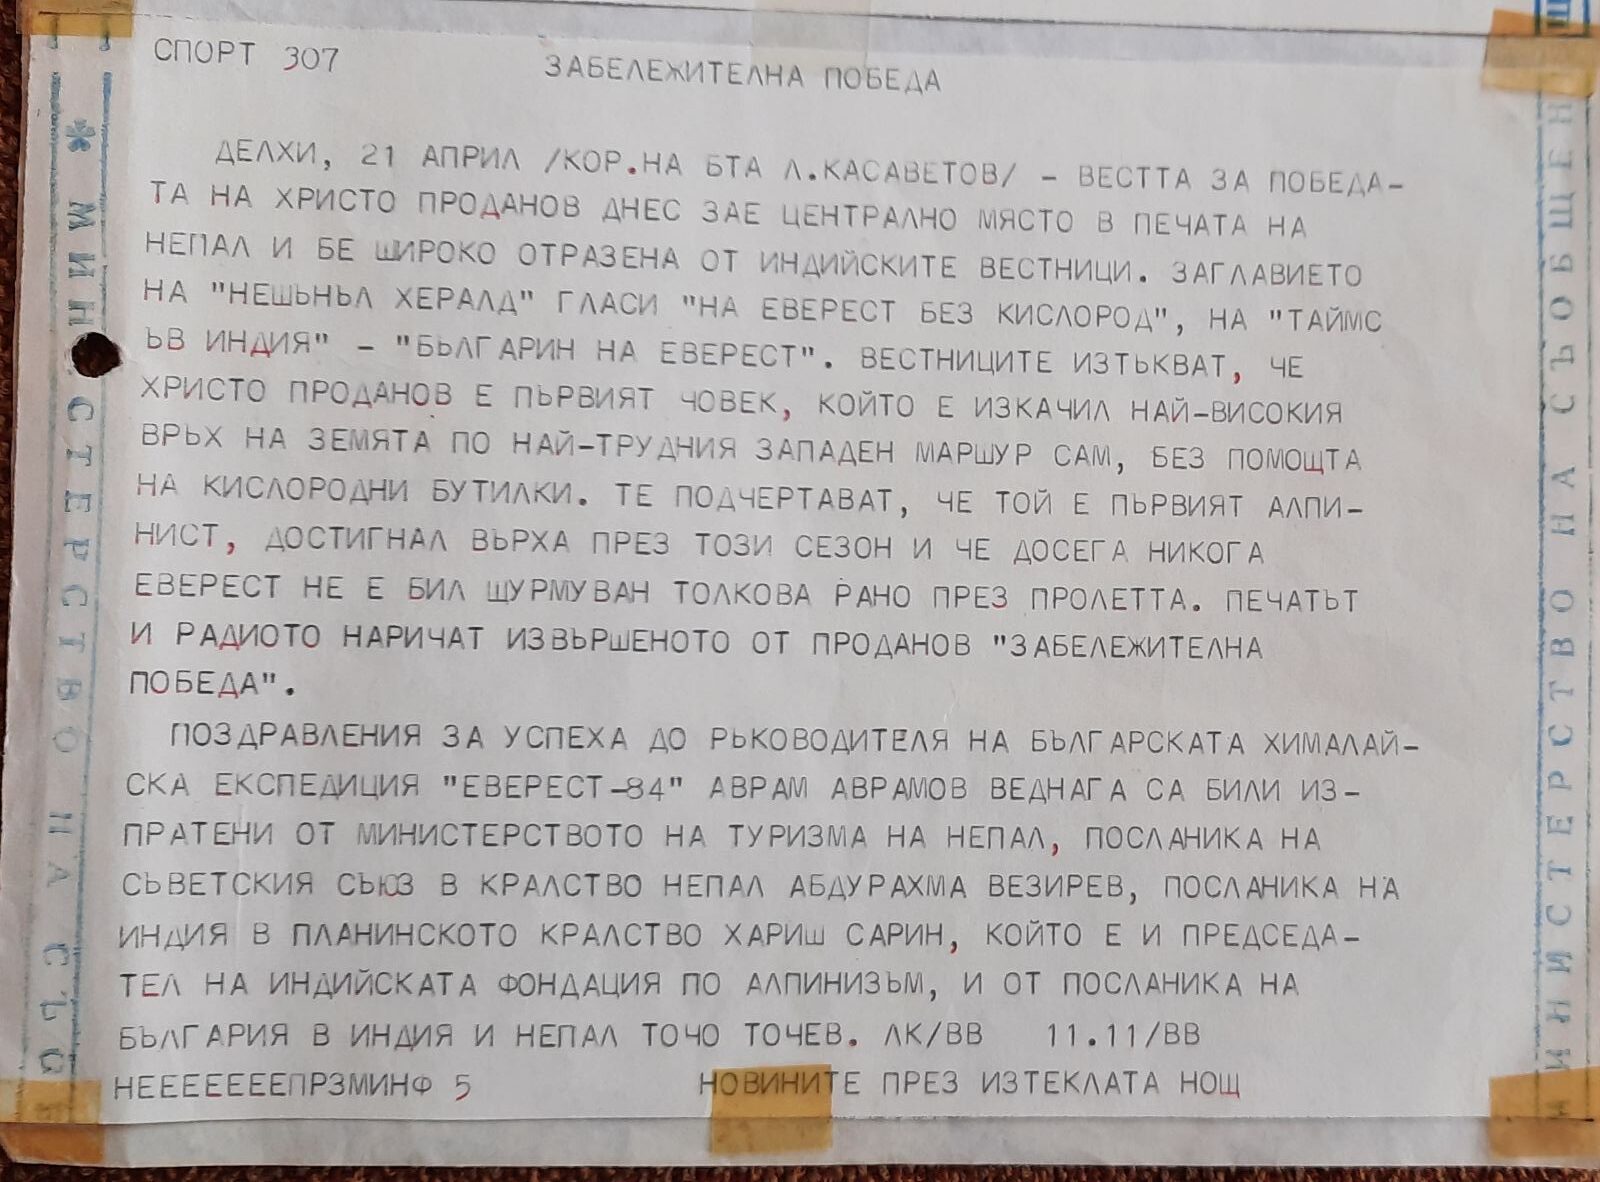 СПОРТ 307 ЗАБЕЛЕЖИТЕЛНА ПОБЕДА
ДЕЛХИ, 21 АПРИЛ /КОР.НА БТА Л.КАСАВЕТОВ/ - ВЕСТТА ЗА ПОБЕДА-
ТА НА ХРИСТО ПРОДАНОВ ДНЕС ЗАЕ ЦЕНТРАЛНО МЯСТО В ПЕЧАТА НА
НЕПАЛ И БЕ ШИРОКО ОТРАЗЕНА ОТ ИНДИЙСКИТЕ ВЕСТНИЦИ. ЗАГЛАВИЕТО
НА "НЕШЬНЪЛ ХЕРАЛД" ГЛАСИ "НА ЕВЕРЕСТ БЕЗ КИСЛОРОД", НА "ТАЙМС
ЪВ ИНДИЯ" - "БЪЛГАРИН НА ЕВЕРЕСТ". ВЕСТНИЦИТЕ ИЗТЪКВАТ, ЧЕ
ХРИСТО ПРОДАНОВ Е ПЪРВИЯТ ЧОВЕК, КОЙТО Е ИЗКАЧИЛ НАЙ-ВИСОКИЯ
ВРЪХ НА ЗЕМЯТА ПО НАЙ-ТРУДНИЯ ЗАПАДЕН МАРШУР САМ, БЕЗ ПОМОЩТА
НА КИСЛОРОДНИ БУТИЛКИ. ТЕ ПОДЧЕРТАВАТ, ЧЕ ТОЙ Е ПЪРВИЯТ АЛПИ-
НИСТ, ДОСТИГНАЛ ВЪРХА ПРЕЗ ТОЗИ СЕЗОН И ЧЕ ДОСЕГА НИКОГА
ЕВЕРЕСТ НЕ Е БИЛ ЩУРМУВАН ТОЛКОВА РАНО ПРЕЗ ПРОЛЕТТА. ПЕЧАТЪТ
И РАДИОТО НАРИЧАТ ИЗВЪРШЕНОТО ОТ ПРОДАНОВ "ЗАБЕЛЕЖИТЕЛНА
ПОБЕДА".
ПОЗДРАВЛЕНИЯ ЗА УСПЕХА ДО РЪКОВОДИТЕЛЯ НА БЪЛГАРСКАТА ХИМАЛАЙ-
СКА ЕКСПЕДИЦИЯ "ЕВЕРЕСТ-84" АВРАМ АВРАМОВ ВЕДНАГА СА БИЛИ ИЗ-
ПРАТЕНИ ОТ МИНИСТЕРСТВОТО НА ТУРИЗМА НА НЕПАЛ, ПОСЛАНИКА НА
СЪВЕТСКИЯ СЪЮЗ В КРАЛСТВО НЕПАЛ АБДУРАХМА ВЕЗИРЕВ, ПОСЛАНИКА НА
ИНДИЯ В ПЛАНИНСКОТО КРАЛСТВО ХАРИШ САРИН, КОЙТО Е И ПРЕДСЕДА-
ТЕЛ НА ИНДИЙСКАТА ФОНДАЦИЯ ПО АЛПИНИЗЪМ, И ОТ ПОСЛАНИКА НА
БЪЛГАРИЯ В ИНДИЯ И НЕПАЛ ТОЧО ТОЧЕВ. ЛК/ВВ 11.11/ВВ
НЕЕЕЕЕЕЕПРЗМИНФ 5 НОВИНИТЕ ПРЕЗ ИЗТЕКЛАТА НОЩ
* МИНИСТЕРСТВО НА СЪО
МИНИСТЕРСТВО НА СЪОБЩЕН